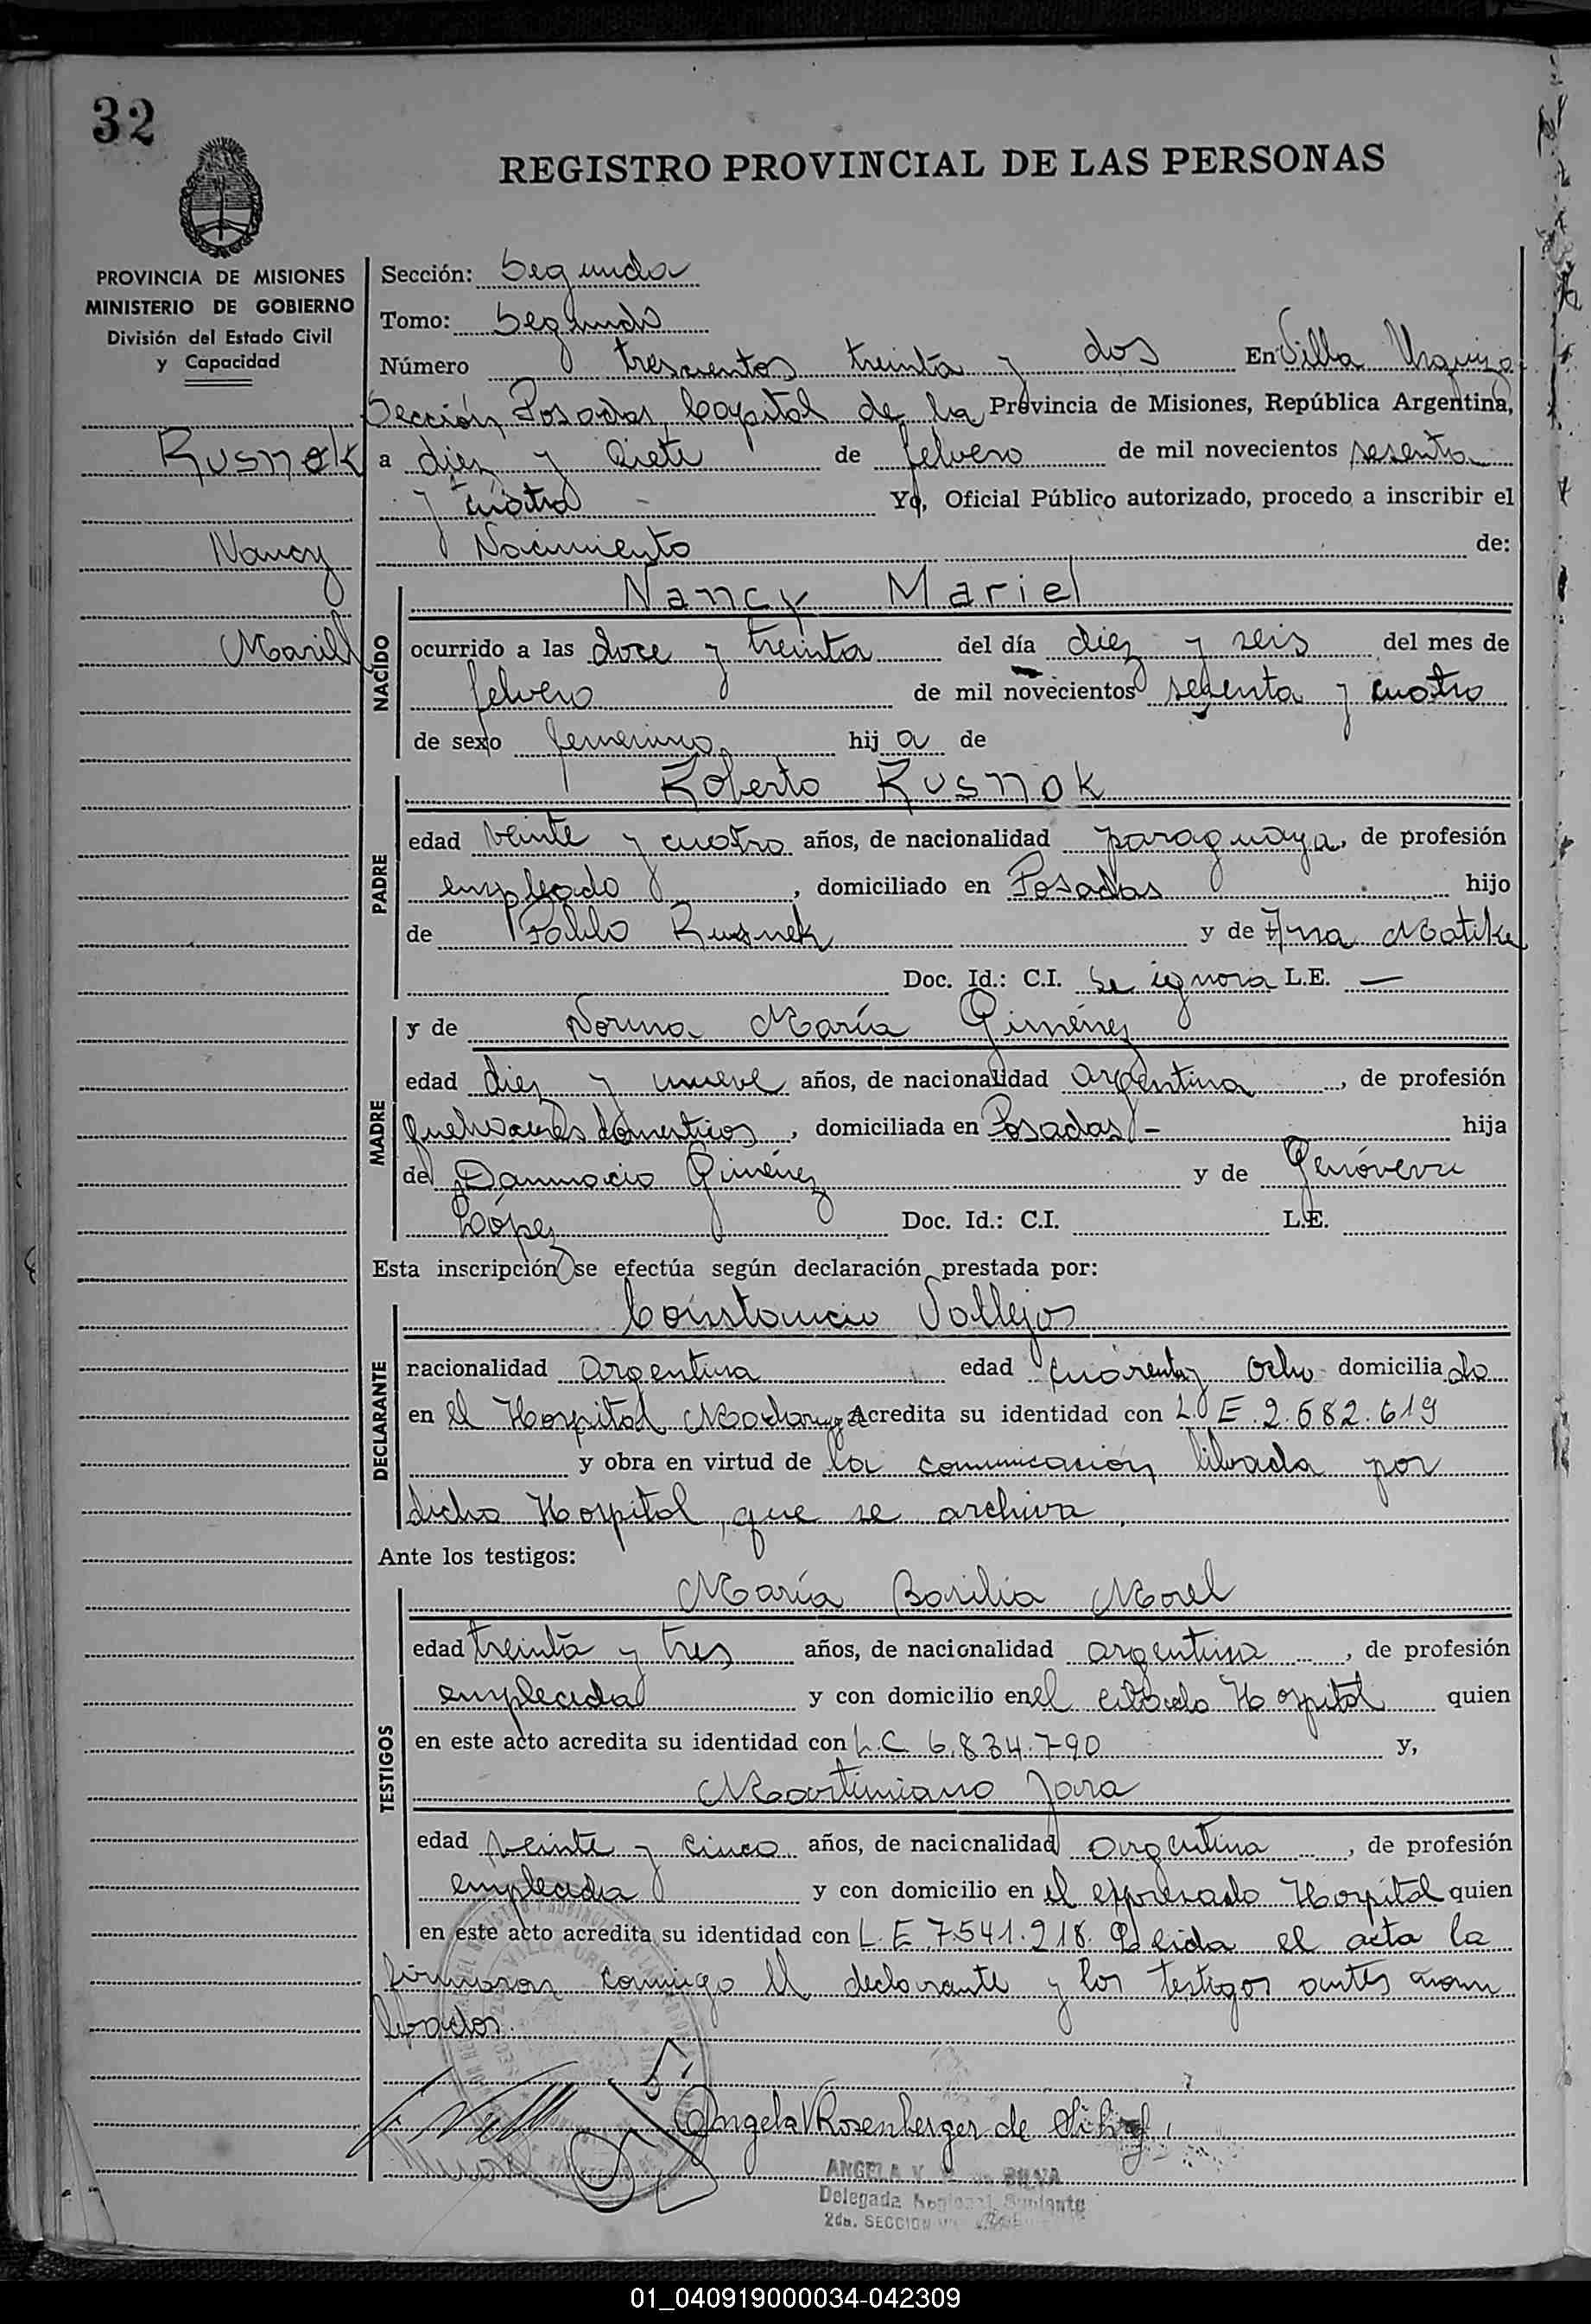 32
REGISTRO PROVINCIAL DE LAS PERSONAS
PROVINCIA DE MISIONES
MINISTERIO DE GOBIERNO
División del Estado Civil
y Capacidad
Rusnok
Nancy
Mariel
Sección: Segunda
Tomo: Segundo
Número trescientos treinta y dos En Villa Urquiza
Sección Posadas, Capital de la Provincia de Misiones, República Argentina,
a diez y siete de febrero de mil novecientos sesenta
y cuatro Yo, Oficial Público autorizado, procedo a inscribir el
Nacimiento de:
NACIDO
Nancy Mariel
ocurrido a las doce y treinta del día diez y seis del mes de
febrero de mil novecientos sesenta y cuatro
de sexo femenino, hij a de
PADRE
Roberto Rusnok
edad veinte y cuatro años, de nacionalidad paraguaya, de profesión
empleado, domiciliado en Posadas hijo
de Pablo Rusnek y de Ana Matike
Doc. Id.: C.I. Se ignora L.E. —
MADRE
y de Norma María Giménez
edad diez y nueve años, de nacionalidad argentina, de profesión
quehaceres domesticos, domiciliada en Posadas - hija
de Giménez y de Genóveva
López Doc. Id.: C.I. L.E.
Esta inscripción se efectúa según declaración prestada por:
DECLARANTE
Constancio Vallejos
nacionalidad argentina edad cuarenta y ocho domicilia do
en el Hospital Madariaga Acredita su identidad con L. E 2.682.619
y obra en virtud de la comunicación librada por
dicho Hospital, que se archiva.
Ante los testigos:
TESTIGOS
María Basilia Morel
edad treinta y tres años, de nacionalidad argentina, de profesión
empleada y con domicilio en el citado Hospital quien
en este acto acredita su identidad con L.C 6.834.790 y,
Martimiano Jara
edad veinte y cinco años, de nacionalidad argentina, de profesión
empleada y con domicilio en el expresado Hospital quien
en este acto acredita su identidad con L.E 7.541.918. Leida el acta la
firmaron conmigo el declarante y los testigos antes nom
brados.
Angela V Rosenberger de
ANGELA V.
Delegada Suplente
2da. SECCION
01_040919000034-042309